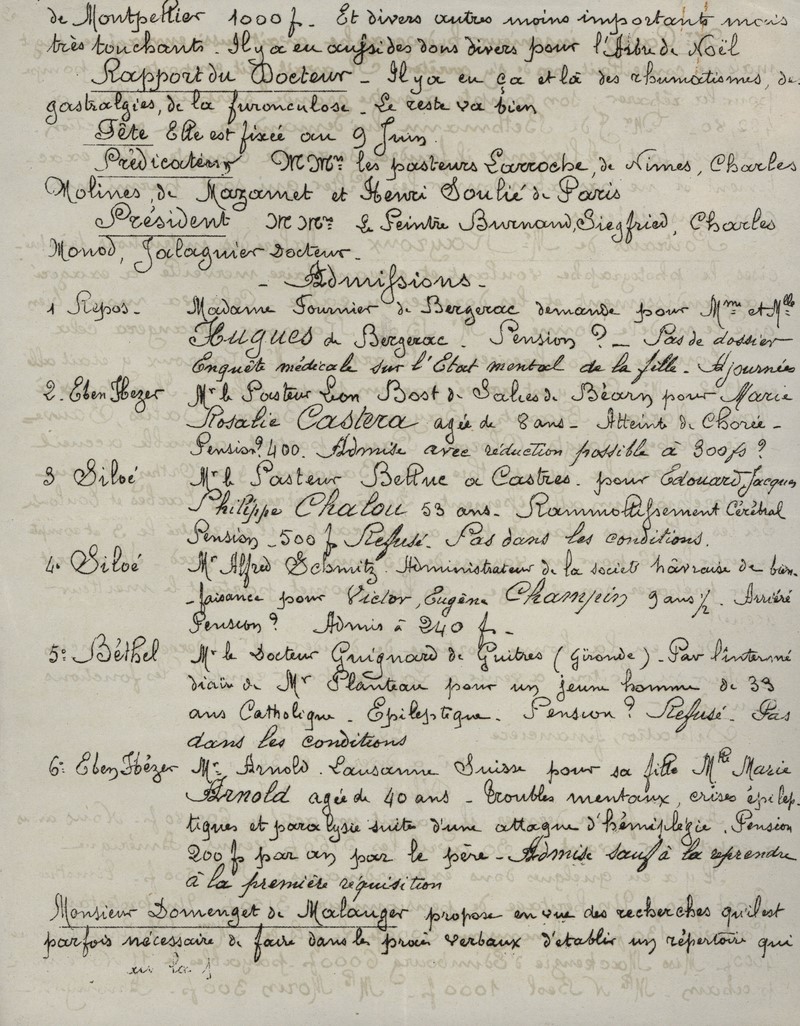 de Montpellier 1000 f. Et divers autres moins importants mais
très touchants. Il y a eu aussi des dons divers pour l'Arbre de Noël
Rapport du Docteur - Il y a eu ça et là des rhumatismes, de
gastralgies, de la furonculose. Le reste va bien
Fête Elle est fixée au 9 Juin.
Prédicateurs MMrs les pasteurs Larroche, de Nimes, Charles
Molines, de Mazamet et Henri Soulié de Paris
Président MMrs Le Peintre Burnand, Siegfried, Charles
Monod, Jalaguier Docteur.
- Admissions -
1 Repos - Madame Fournier de Bergerac demande pour Mme et Mlle
Hugues de Bergerac. Pension ? - Pas de dossier
Enquête médicale sur l'Etat mental de la fille. Ajournées
2. Eben Hezer Mr le Pasteur Léon Bost de Salies de Béarn pour Marie
Rosalie Castera agée de 8 ans - Atteint de Chorée -
Pension ? 400. Admise avec réduction possible à 300 fs ?
3 Siloé Mr le Pasteur Bettuc a Castres. pour Edouard, Jacques
Philippe Chalou 53 ans - Rammollissement Cérébral
Pension - 500 f Refusé. Pas dans les conditions.
4. Siloé Mr Alfred Schmitz. Administrateur de la societé hâvraise de bien
-faisance pour Victor, Eugène Champin 9 ans ½. Arriéré
Pension ? Admis à 240 f. -
5. Béthel Mr le Docteur Guignard de Guitres (Gironde) - Par l'intermé
diaire de Mr Planteau pour un jeune homme de 33
ans Catholique - Epileptique. Pension ? Refusé - Pas
dans les conditions
6. Eben Hézer Mr Arnold. Lausanne Suisse pour sa fille Mlle Marie
Arnold agée de 40 ans - troubles mentaux, crises épilep-
tiques et paralysie suite d'une attaque d'hémiplégie. Pension
200 f par an par le père - Admise sauf à la reprendre
à la première réquisition
Monsieur Domenget de Malauger propose en vue des recherches qu'il est
parfois nécessaire de faire dans les procès verbaux d'etablir un répertoire qui